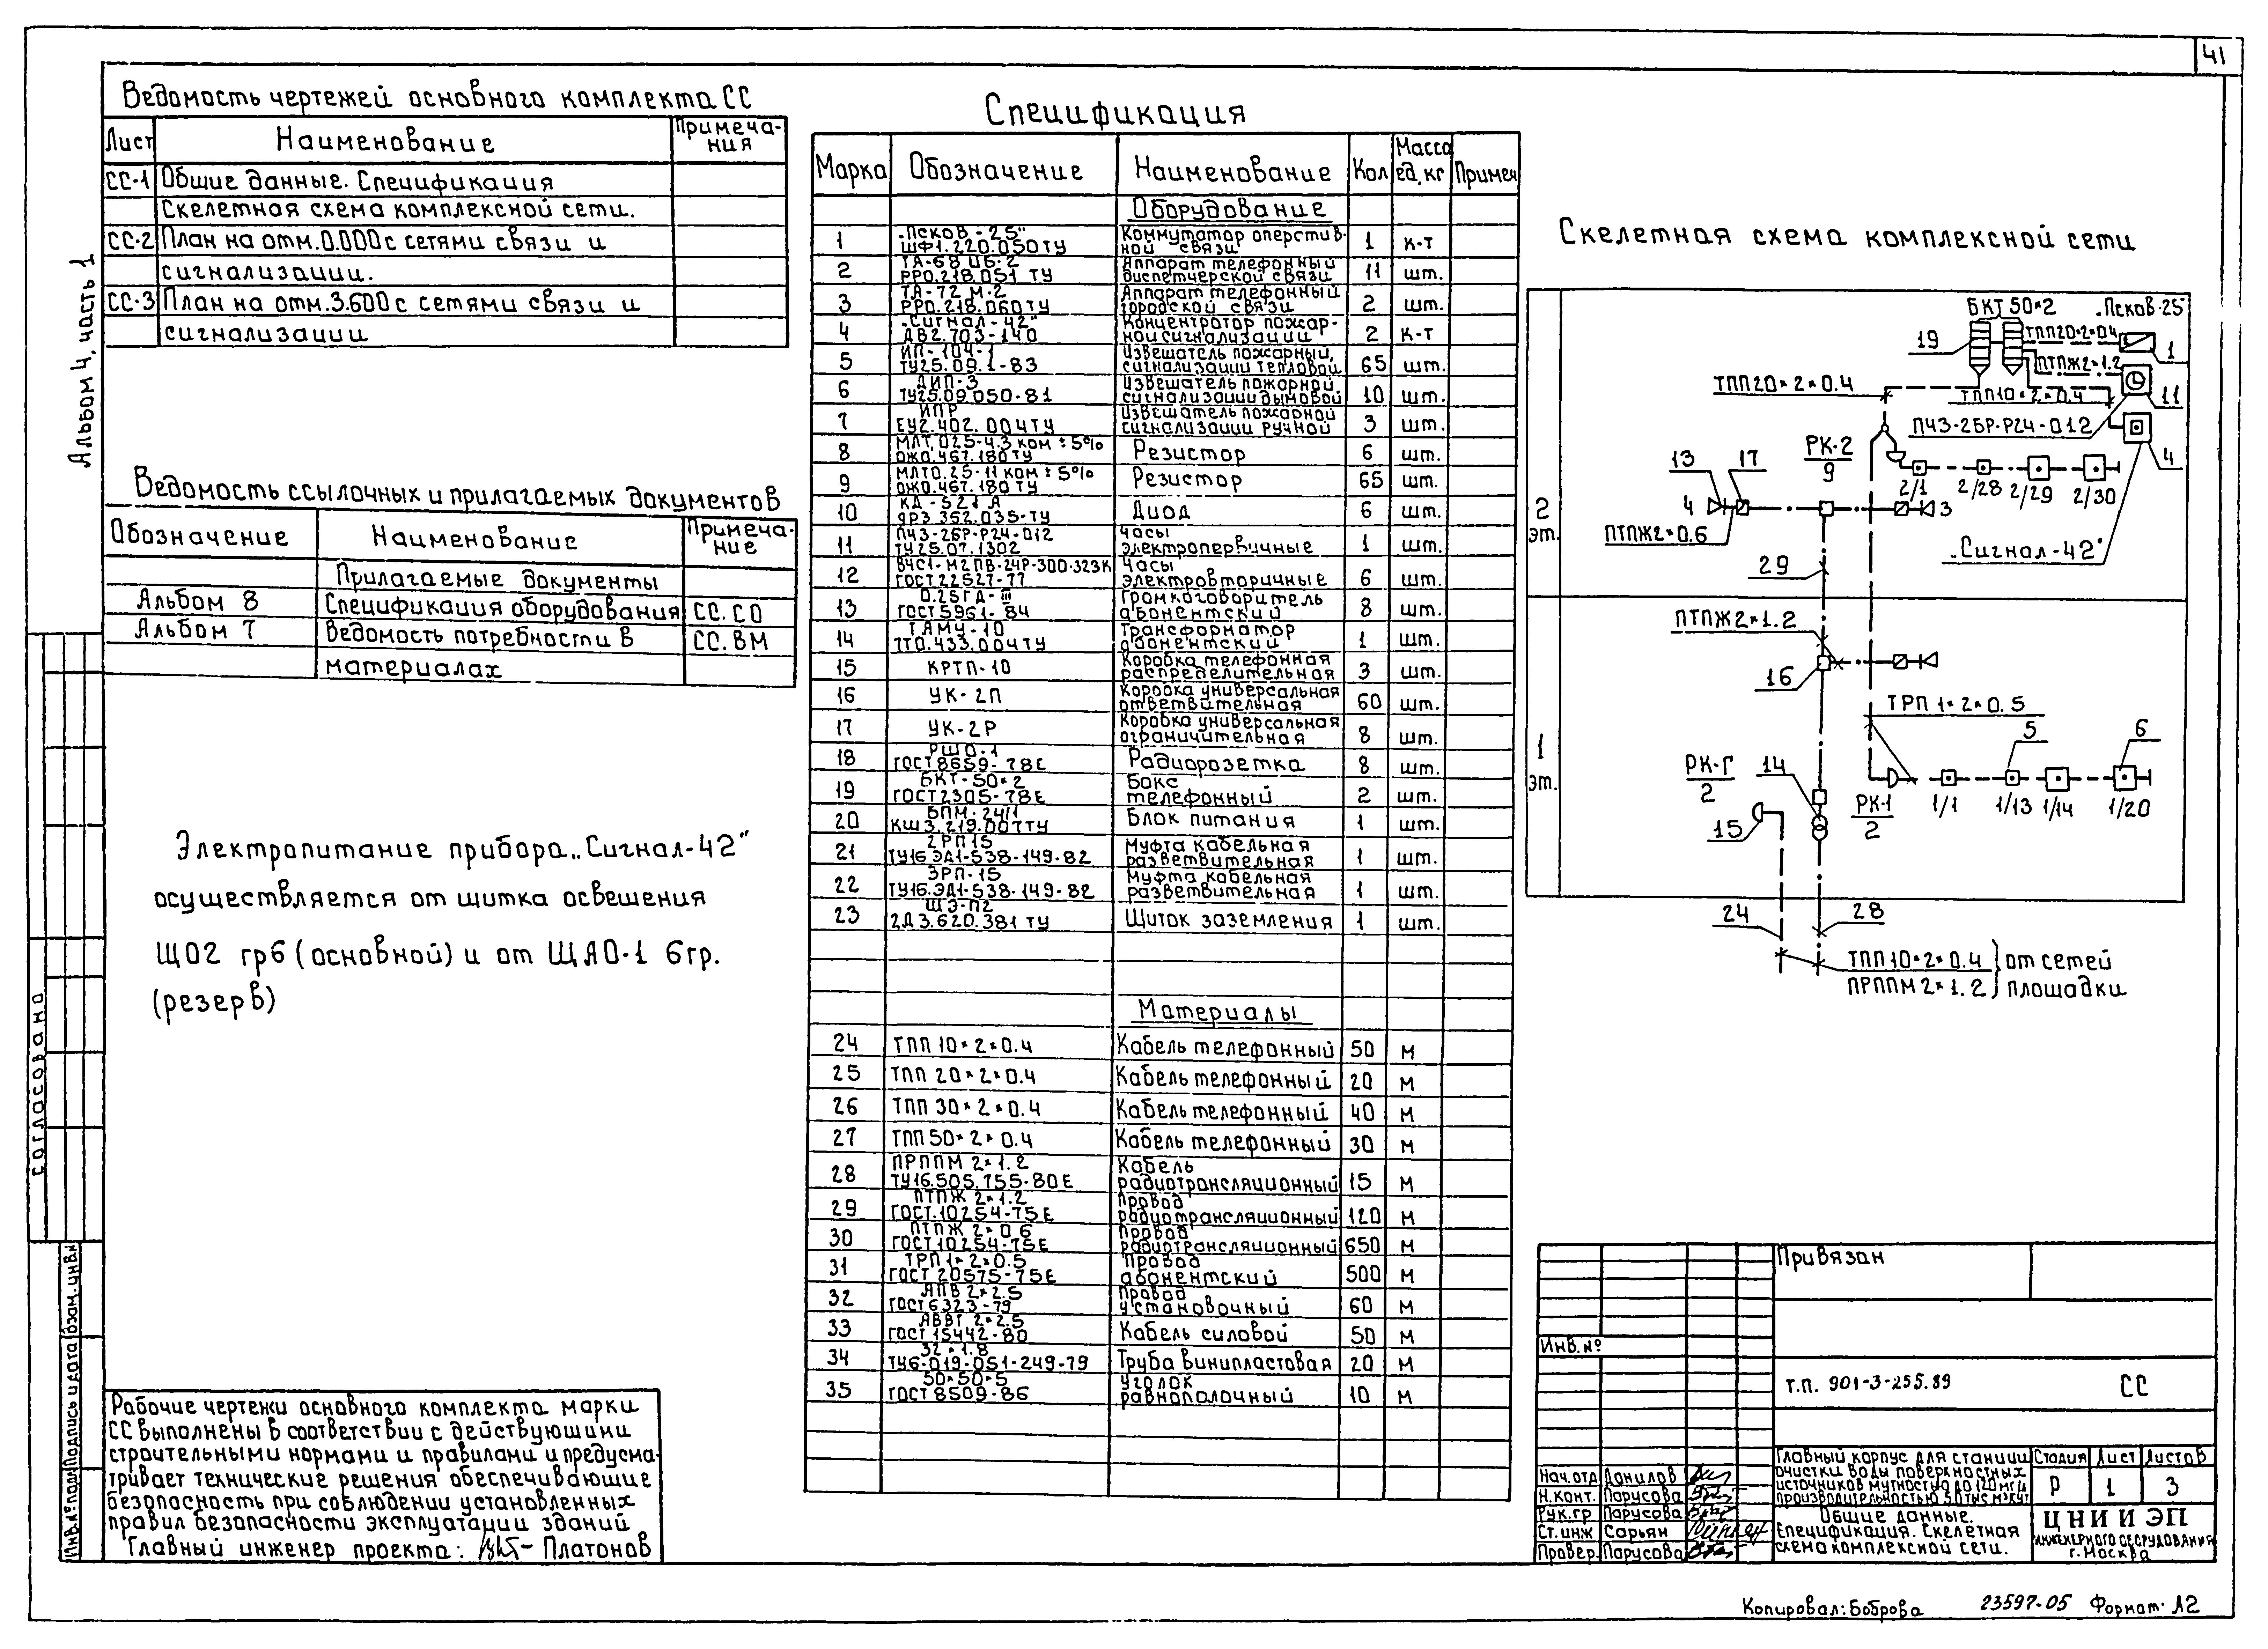 41
Альбом 4, часть 1
Ведомость чертежей основного комплекта СС
Лист Наименование Примеча-
ния
СС-1 Общие данные. Спецификация
Скелетная схема комплексной сети.
СС-2 План на отм. 0.000 с сетями связи и
сигнализации.
СС-3 План на отм. 3.600 с сетями связи и
сигнализации
Ведомость ссылочных и прилагаемых документов
Обозначение Наименование Примеча-
ние
Прилагаемые документы
Альбом 8 Спецификация оборудования СС.СО
Альбом 7 Ведомость потребности в СС.ВМ
материалах
Электропитание прибора „Сигнал-42"
осуществляется от щитка освещения
ЩО2 гр6 (основной) и от ЩАО-1 6гр.
(резерв)
Рабочие чертежи основного комплекта марки
СС выполнены в соответствии с действующими
строительными нормами и правилами и предусма-
тривает технические решения обеспечивающие
безопасность при соблюдении установленных
правил безопасности эксплуатации зданий
Главный инженер проекта: Платонов
Согласовано
Инв.№ подл Подпись и дата Взам.инв.№
Спецификация
Марка Обозначение Наименование Кол Масса ед, кг Примеч
Оборудование
1 „Псков-25" ШФ1.220.050ТУ Коммутатор оператив-ной связи 1 к-т
2 ТА-68 ЦБ-2 РР0.218.051 ТУ Аппарат телефонный диспетчерской связи 11 шт.
3 ТА-72 М-2 РР0.218.060ТУ Аппарат телефонный городской связи 2 шт.
4 „Сигнал-42" ДВ2.703-140 Концентратор пожар-ной сигнализации 2 к-т
5 ИП-104-1 ТУ25.09.1-83 Извещатель пожарный, сигнализации тепловой 65 шт.
6 ДИП-3 ТУ25.09.050-81 Извещатель пожарной сигнализации дымовой 10 шт.
7 ИПР ЕУ2.402.004ТУ Извещатель пожарной сигнализации ручной 3 шт.
8 МЛТ.025-4.3 ком ± 5% ОЖ0.467.180ТУ Резистор 6 шт.
9 МЛТ0.25-11 ком ± 5% ОЖ0.467.180ТУ Резистор 65 шт.
10 КД-521 А дР3 352.035-ТУ Диод 6 шт.
11 ПЧ3-2БР-Р24-012 ТУ25.07.1302 Часы электропервичные 1 шт.
12 ВЧС1-М2ПВ-24Р-300-323К ГОСТ22527-77 Часы электровторичные 6 шт.
13 0.25ГД-III ГОСТ5961-84 Громкоговоритель абонентский 8 шт.
14 ТАМУ-10 7Т0.433.004ТУ Трансформатор абонентский 1 шт.
15 КРТП-10 Коробка телефонная распределительная 3 шт.
16 УК-2П Коробка универсальная ответвительная 60 шт.
17 УК-2Р Коробка универсальная ограничительная 8 шт.
18 РШО-1 ГОСТ8659-78Е Радиорозетка 8 шт.
19 БКТ-50×2 ГОСТ2305-78Е Бокс телефонный 2 шт.
20 БПМ-24/1 КШ3.219.007ТУ Блок питания 1 шт.
21 2РП15 ТУ16.ЭД1-538-149-82 Муфта кабельная разветвительная 1 шт.
22 3РП-15 ТУ16.ЭД1-538-149-82 Муфта кабельная разветвительная 1 шт.
23 ЩЭ-П2 2Д3.620.381 ТУ Щиток заземления 1 шт.
Материалы
24 ТПП 10×2×0.4 Кабель телефонный 50 м
25 ТПП 20×2×0.4 Кабель телефонный 20 м
26 ТПП 30×2×0.4 Кабель телефонный 40 м
27 ТПП 50×2×0.4 Кабель телефонный 30 м
28 ПРППМ 2×1.2 ТУ16.505.755-80Е Кабель радиотрансляционный 15 м
29 ПТПЖ 2×1.2 ГОСТ.10254-75Е Провод радиотрансляционный 120 м
30 ПТПЖ 2×0.6 ГОСТ10254-75Е Провод радиотрансляционный 650 м
31 ТРП 1×2×0.5 ГОСТ 20575-75Е Провод абонентский 500 м
32 АПВ 2×2.5 ГОСТ6323-79 Провод установочный 60 м
33 АВВГ 2×2.5 ГОСТ 15442-80 Кабель силовой 50 м
34 32×1.8 ТУ6-019-051-249-79 Труба винипластовая 20 м
35 50×50×5 ГОСТ8509-86 Уголок равнополочный 10 м
Скелетная схема комплексной сети
2 эт.
1 эт.
БКТ 50×2 „Псков-25"
19
ТПП20×2×0.4
1
ПТПЖ2×1.2
ТПП20×2×0.4
ТПП10×2×0.4
11
ПЧ3-2БР-Р24-012
4
РК-2
9
13
17
4
3
2/1 2/28 2/29 2/30
ПТПЖ2×0.6
„Сигнал-42"
29
ПТПЖ2×1.2
16
ТРП 1×2×0.5
5
6
РК-Г
2
14
15
РК-1
2
1/1 1/13 1/14 1/20
24
28
ТПП10×2×0.4 от сетей
ПРППМ 2×1.2 площадки
Привязан
Инв.№
Т.П. 901-3-255.89 СС
Нач.отд Данилов
Н.конт. Парусова
Рук.гр Парусова
Ст.инж Сарьян
Провер. Парусова
Главный корпус для станции
очистки воды поверхностных
источников мутностью до 120 мг/л
производительностью 5.0 тыс м3/сут
Стадия Лист Листов
Р 1 3
Общие данные.
Спецификация. Скелетная
схема комплексной сети.
ЦНИИЭП
инженерного оборудования
г. Москва
Копировал: Боброва 23597-05 Формат А2